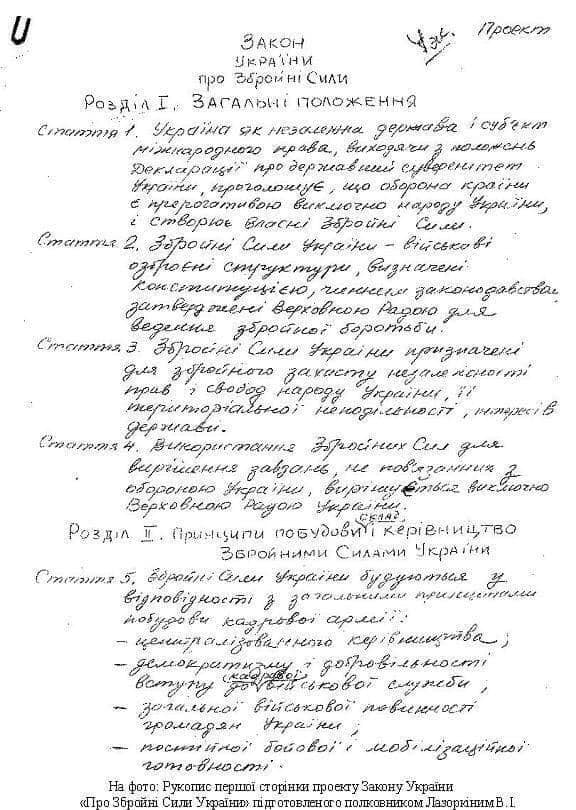 Проект
Закон
України
про Збройні Сили
Розділ I. Загальні положення
Стаття 1. Україна як незалежна держава і суб'єкт
міжнародного права, виходячи з положень
Декларації про державний суверенітет
України, проголошує, що оборона країни
є прерогативою виключно народу України,
і створює власні Збройні Сили.
Стаття 2. Збройні Сили України – військові
озброєні структури, визначені
Конституцією, чинним законодавством,
затверджені Верховною Радою для
ведення збройної боротьби.
Стаття 3. Збройні Сили України призначені
для збройного захисту незалежності
прав і свобод народу України, її
територіальної неподільності, інтересів
держави.
Стаття 4. Використання Збройних Сил для
вирішення завдань, не пов'язанних з
обороною України, вирішується виключно
Верховною Радою України.
склад
Розділ II. Принципи побудови і керівництво
Збройними Силами України
Стаття 5. Збройні Сили України будуються у
відповідності з загальними принципами
побудови кадрової армії:
– централізованного керівництва;
– демократизму і добровільності
кадрової
вступу до військової служби,
– загальної військової повинності
громадян України;
– постійної бойової і мобілізаційної
готовності.
На фото: Рукопис першої сторінки проекту Закону України
«Про Збройні Сили України» підготовленого полковником Лазоркіним В.І.